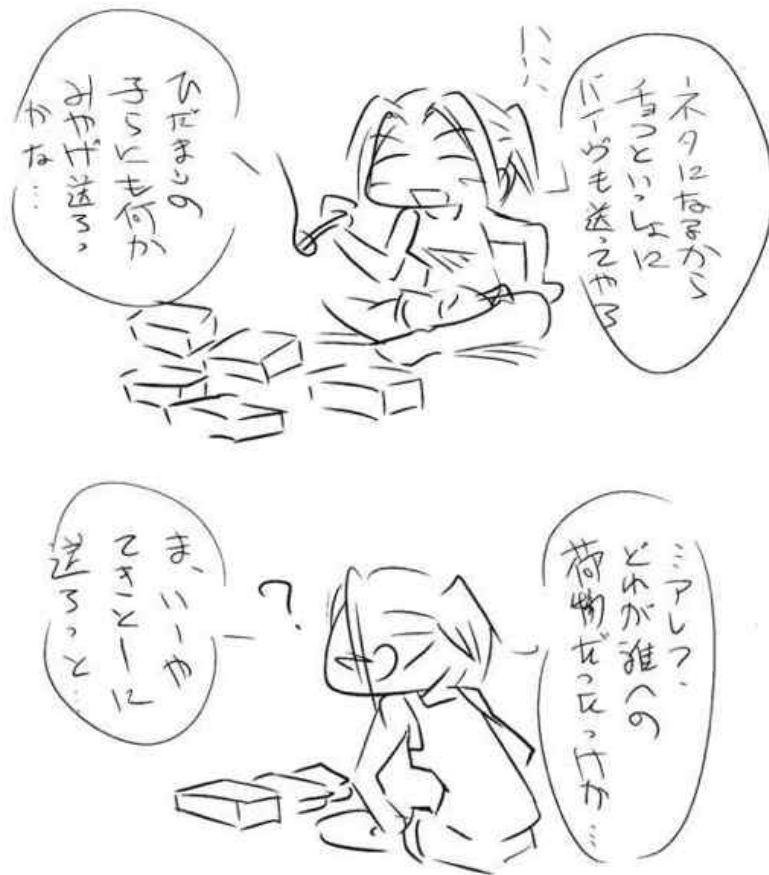 ネタになるから
チョっといっしょに
バイヴも送ってやろ
ひだまりの
子らにも何か
みやげ送ろっ
かな…
…アレ?、
どれが誰への
荷物だったっけか…
?
ま、いーや
てきとーに
送ろっと…